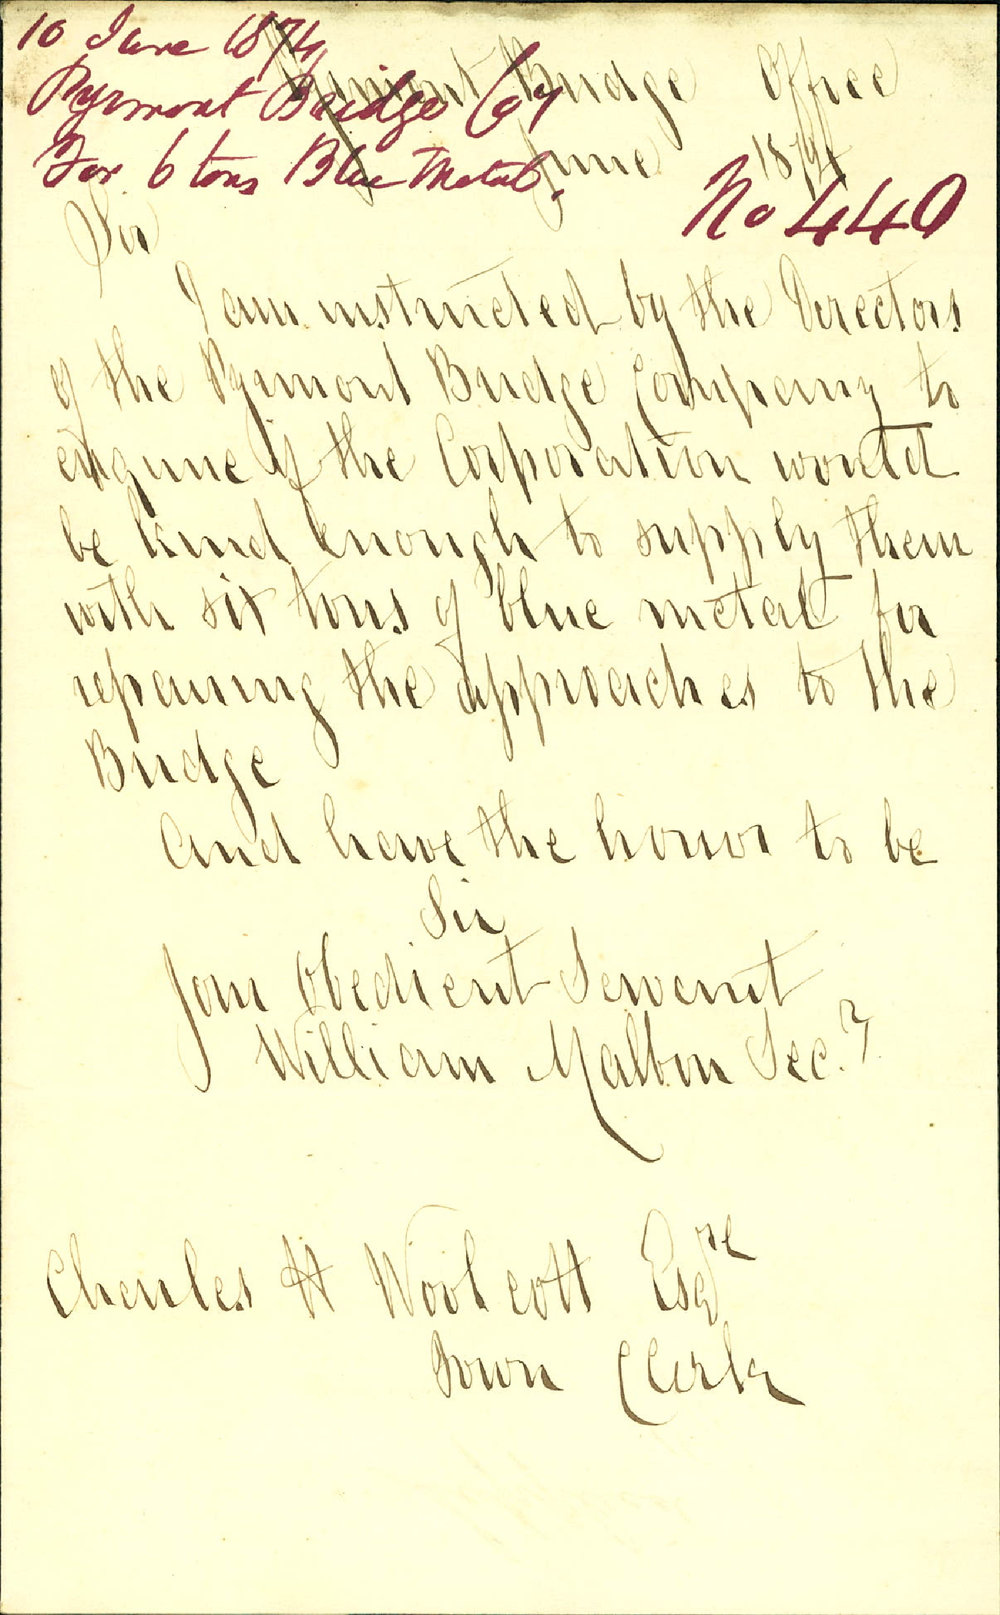 10 June 1874
Pyrmont Bridge Coy
For 6 tons Blue Metal.
No 440
Pyrmont Bridge Office
June 1874
Sir
I am instructed by the Directors
of the Pyrmont Bridge Company to
enquire if the Corporation would
be kind enough to supply them
with six tons of blue metal for
repairing the approaches to the
Bridge
And have the honor to be
Sir
Your Obedient Servant
William Malbon Secy
Charles H Woolcott Esqre
Town Clerk